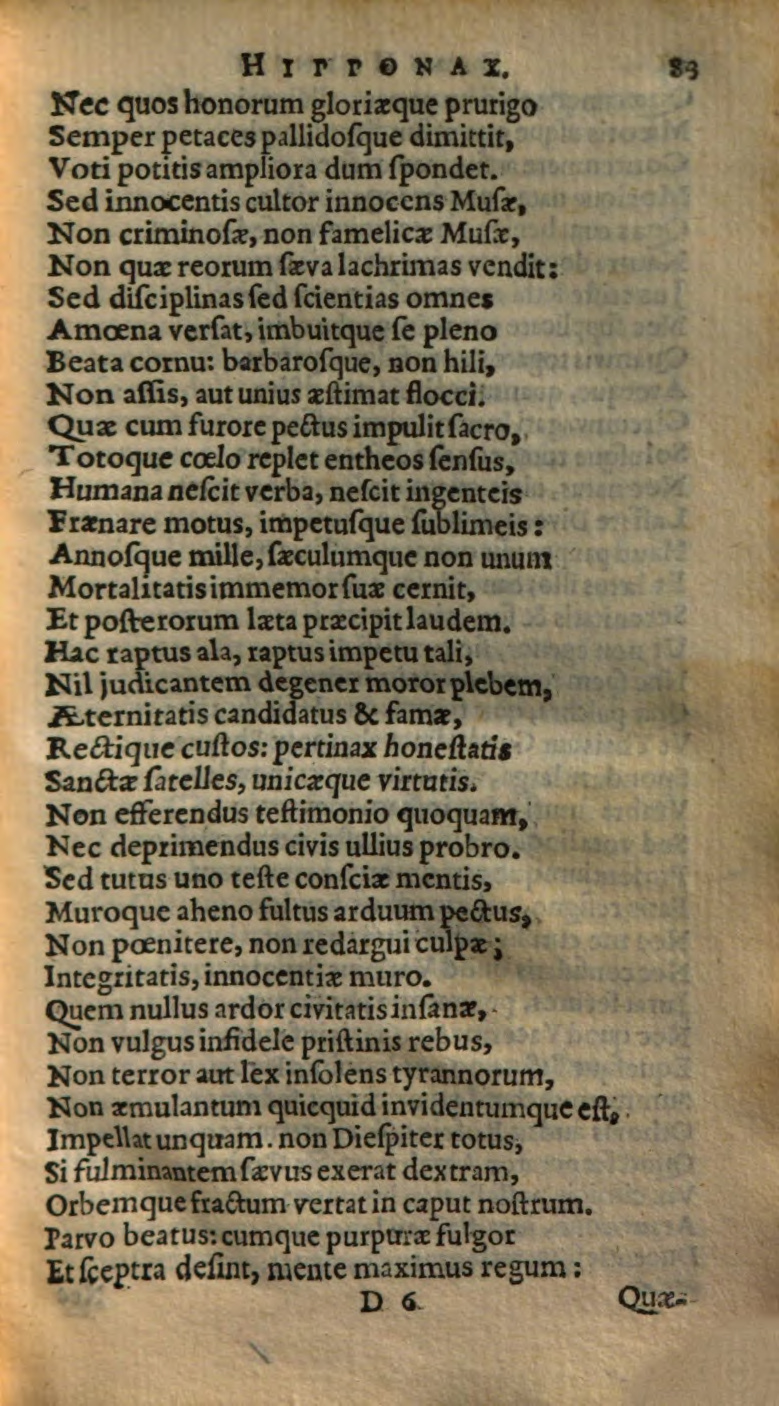 HIPPONAX. 83
Nec quos honorum gloriæque prurigo
Semper petaces pallidoſque dimittit,
Voti potitis ampliora dum ſpondet.
Sed innocentis cultor innocens Muſæ,
Non criminoſæ, non famelicæ Muſæ,
Non quæ reorum ſæva lachrimas vendit:
Sed diſciplinas ſed ſcientias omnes
Amœna verſat, imbuitque ſe pleno
Beata cornu: barbaroſque, non hili,
Non aſſis, aut unius æſtimat flocci.
Quæ cum furore pectus impulit ſacro,
Totoque cœlo replet entheos ſenſus,
Humana neſcit verba, neſcit ingenteis
Frænare motus, impetuſque ſublimeis:
Annoſque mille, ſæculumque non unum
Mortalitatis immemor ſuæ cernit,
Et poſterorum læta præcipit laudem.
Hac raptus ala, raptus impetu tali,
Nil judicantem degener moror plebem,
Æternitatis candidatus & famæ,
Rectique cuſtos: pertinax honeſtatis
Sanctæ ſatelles, unicæque virtutis.
Non efferendus teſtimonio quoquam,
Nec deprimendus civis ullius probro.
Sed tutus uno teſte conſciæ mentis,
Muroque aheno fultus arduum pectus,
Non pœnitere, non redargui culpæ;
Integritatis, innocentiæ muro.
Quem nullus ardor civitatis inſanæ,
Non vulgus infidele priſtinis rebus,
Non terror aut lex inſolens tyrannorum,
Non æmulantum quicquid invidentumque eſt,
Impellat unquam. non Dieſpiter totus,
Si fulminantem ſævus exerat dextram,
Orbemque fractum vertat in caput noſtrum.
Parvo beatus: cumque purpuræ fulgor
Et ſceptra deſint, mente maximus regum:
D 6 Quæ-